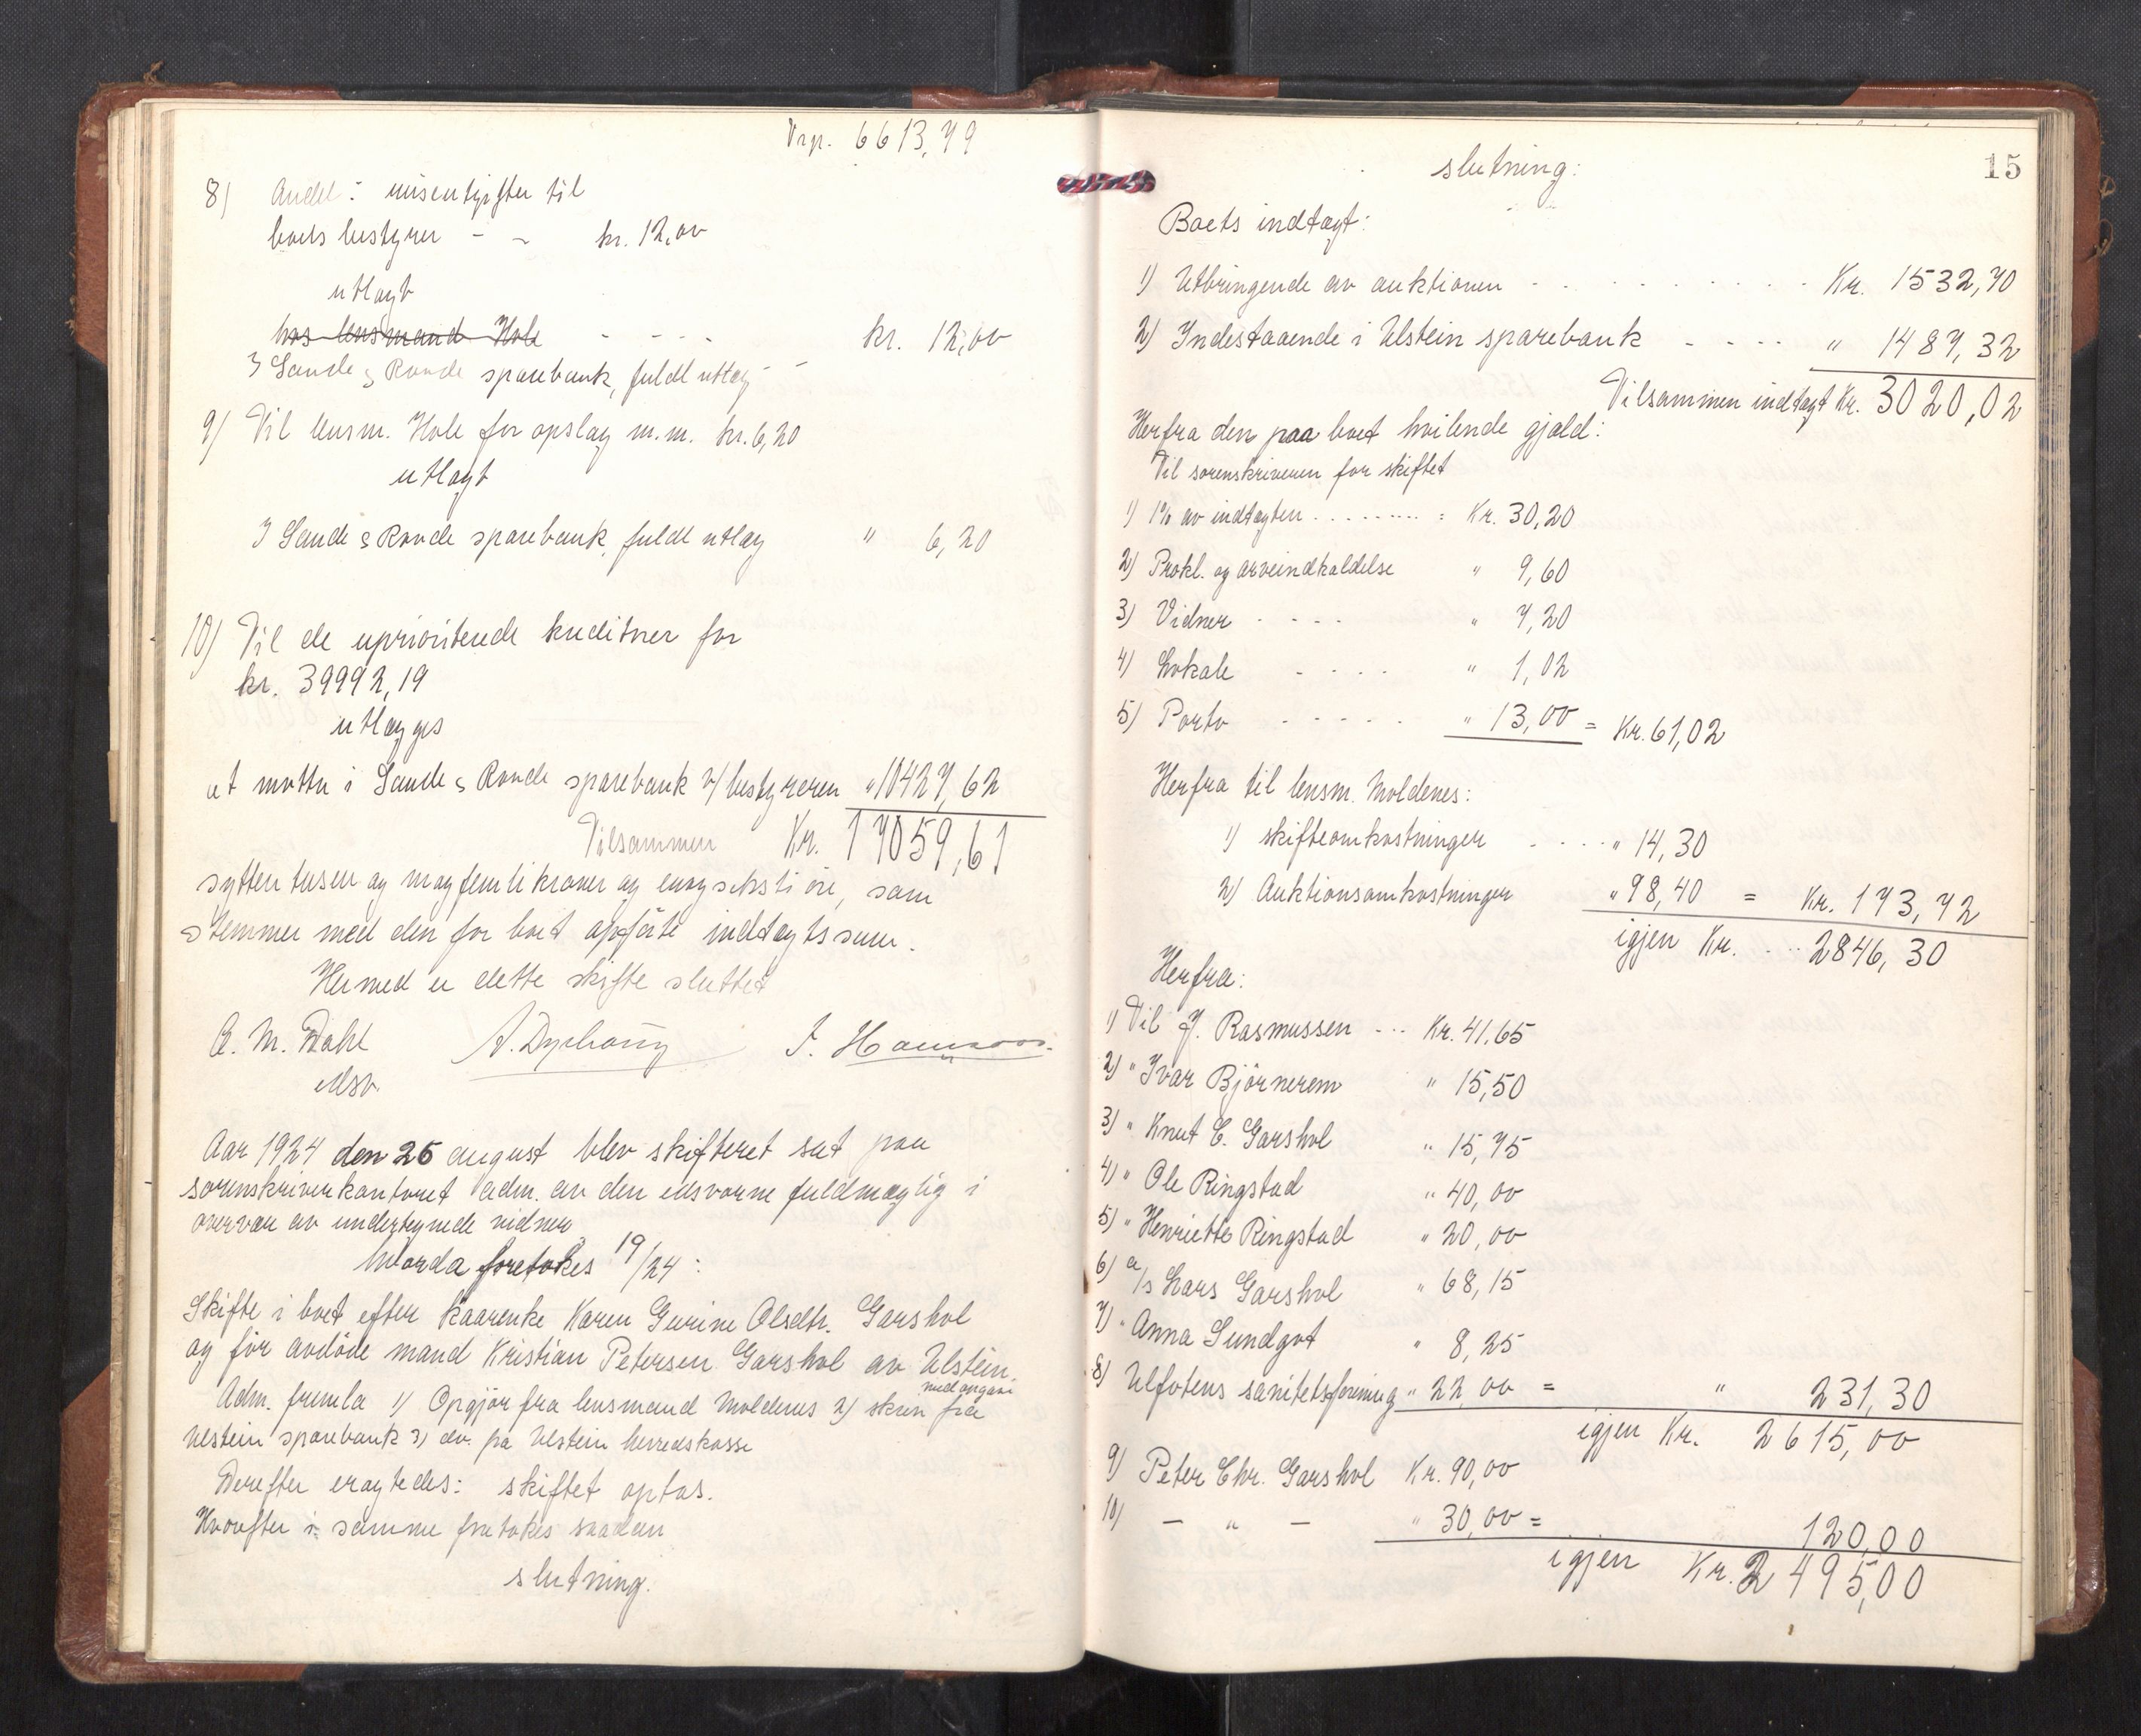 Trp. 6613,79
8) Andel: misentlighter til
boets bestyrer - - kr. 12,00
utlagt
hos lensmand Hole - - - - kr. 12,00
I Sande & Rovde sparebank, fuldt utlæg - -
9) Til lensm. Hole for opslag m.m. kr. 6,20
utlagt
I Sande & Rovde sparebank, fuldt utlæg " 6,20
10) Til de uprioriterede kreditorer for
kr. 39992,19
utlægges
at motta i Sande & Rovde sparebank v/ bestyreren " 10427,62
Tilsammen Kr. 17059,61
sytten tusen og niogfemti kroner og enogseksti øre, som
stemmer med den for boet opførte indtægtssum.
Hermed er dette skifte sluttet
A. M. Dahl
edsv.
Aar 1924 den 25 august blev skifteret sat paa
sorenskriverkontoret adm. av den edsvorne fuldmægtig i
overvær av undertegnede vidner.
Hvorda foretokes 19/24:
Skifte i boet efter kaarenke Karen Gurine Olsdtr. Garshol
og før avdøde mand Kristian Petersen Garshol av Ulstein.
Adm. fremla 1) Opgjør fra lensmand Moldenes 2) skriv fra
Ulstein sparebank 3) do. fra Ulstein herredskasse
Derefter eragtedes: skiftet optas.
Hvorefter i samme foretokes saadan
slutning.
15
slutning:
Boets indtægt:
1) Utbringende av auktionen - - - - - - Kr. 1532,70
2) Indestaaende i Ulstein sparebank - - - - " 1487,32
Tilsammen indtægt Kr. 3020,02
Herfra den paa boet hvilende gjæld:
Til sorenskriveren for skiftet
1) 1% av indtægten ......... = Kr. 30,20
2) Prokl. og arveindkaldelse " 9,60
3) Vidner - - - - " 7,20
4) Lokale - - - - " 1,02
5) Porto - - - - - " 13,00 = Kr. 61,02
Herfra til lensm. Moldenes:
1) skifteomkostninger - - - - " 14,30
2) Auktionsomkostninger " 98,40 = Kr. 173,72
igjen Kr. - - - 2846,30
Herfra:
1) Til J. Rasmussen --- Kr. 41,65
2) " Ivar Bjørnerem " 15,50
3) " Knut E. Garshol " 15,75
4) " Ole Ringstad " 40,00
5) " Henriette Ringstad " 20,00
6) a/s Lars Garshol " 68,15
7) " Anna Sundgot " 8,25
8) Ulfotens sanitetsforening " 22,00 = " 231,30
igjen Kr. 2615,00
9) Peter Chr. Garshol Kr. 90,00
10) - " - " 30,00 = 120,00
igjen Kr. 2495,00